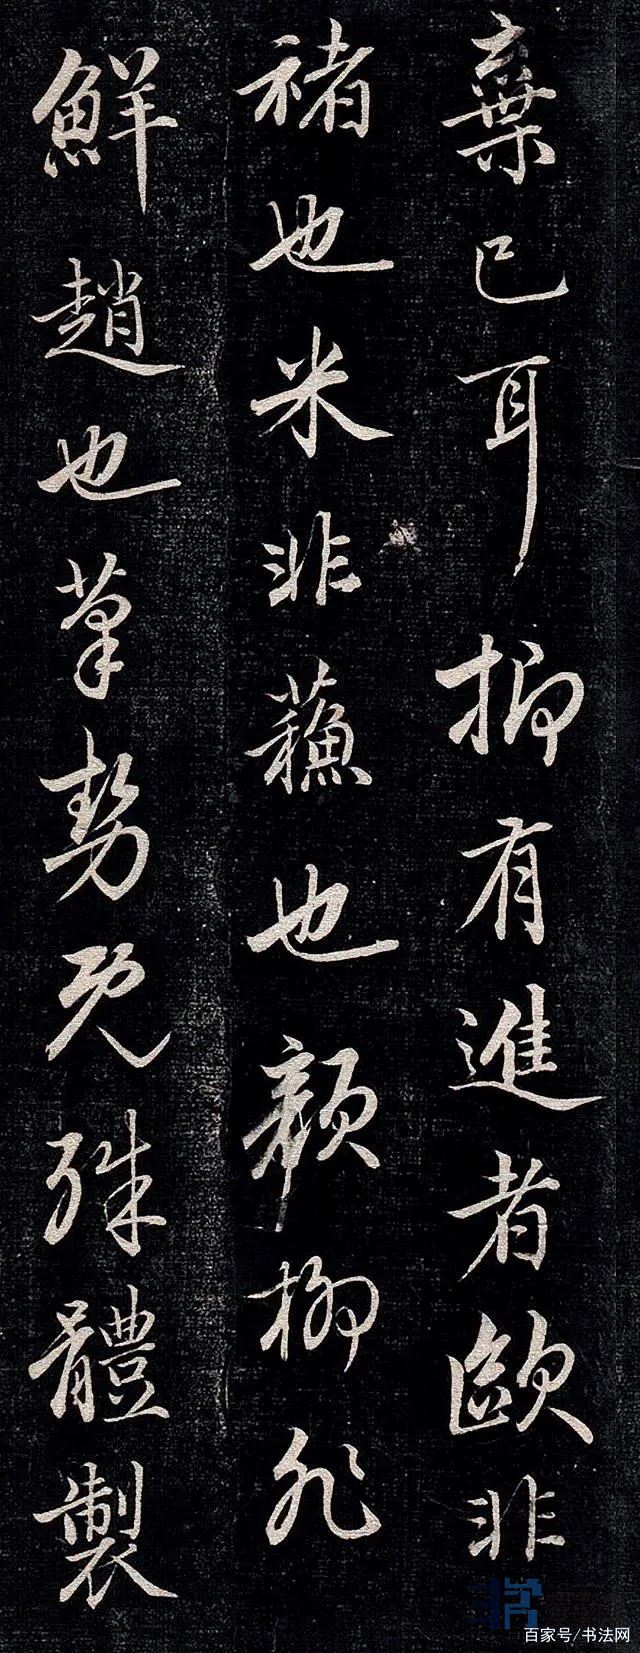 棄已耳抑有進者歐非
褚也米非蘇也顏柳非
鮮趙也筆勢既殊體製
百家号/书法网